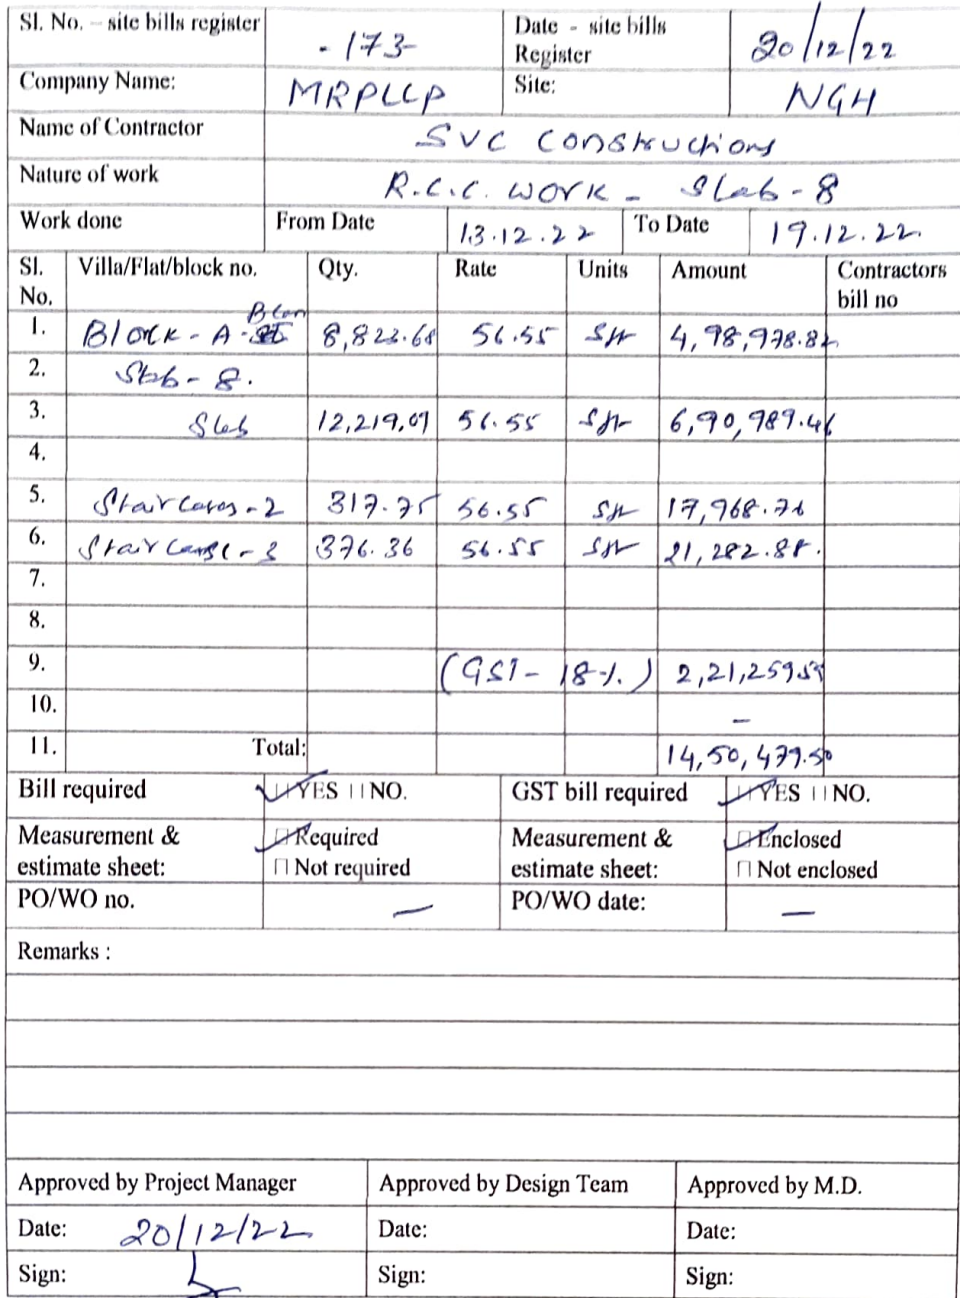 Sl. No. – site bills register - 173- Date - site bills Register 20/12/22
Company Name: MRPLLP Site: NGH
Name of Contractor SVC Constructions
Nature of work R.C.C. work - Slab - 8
Work done From Date 13.12.22 To Date 19.12.22
Sl. No. Villa/Flat/block no. Qty. Rate Units Amount Contractors bill no
1. Block - A - 8,823.68 56.55 Sft 4,98,978.82
2. Slab - 8.
3. Slab 12,219.07 56.55 Sft 6,90,989.46
4.
5. Staircases - 2 317.75 56.55 Sft 17,968.76
6. Staircase - 3 376.36 56.55 Sft 21,282.88.
7.
8.
9. (GST - 18%) 2,21,259.59
10. –
11. Total: 14,50,479.50
Bill required YES NO. GST bill required YES NO.
Measurement & estimate sheet: Required Measurement & estimate sheet: Enclosed
Not required Not enclosed
PO/WO no. — PO/WO date: —
Remarks :
Approved by Project Manager Approved by Design Team Approved by M.D.
Date: 20/12/22 Date: Date:
Sign: Sign: Sign: